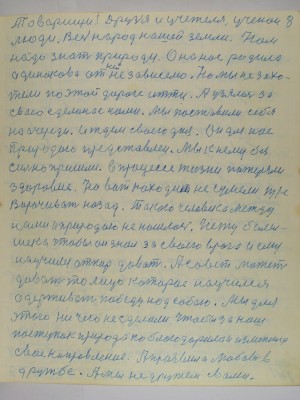 Товарищи! Друзья и учителя, ученои
люди, Весь народ нашей земли. Нам
надо знат природу. Она нас родила
одинакова от ней не зависемо. Но мы не захо-
тели по этой дороге итти. А узялись за
своё сделанае нами. Мы поставили себя
на очереди, и ждем своево дня. Он для нас
природою представлен. Мы к нему без
сильно пришли. В процессе жизни потеряли
здоровие. На ват находит не сумели
ворочивать назад. Такого человека между
нами и природаю не нашлось. Нету
чтобы он знал за своево врага и ему
научился отпор давать. А совет может
давать то лицо катарае научилася
одерживать победу над собою. Мы для
этого ни чего не сделали чтобы за наш
поступак природа поблогодарила изменила
свае направление. А проявила любовь в
дружбе. А мы не дружем с вами.